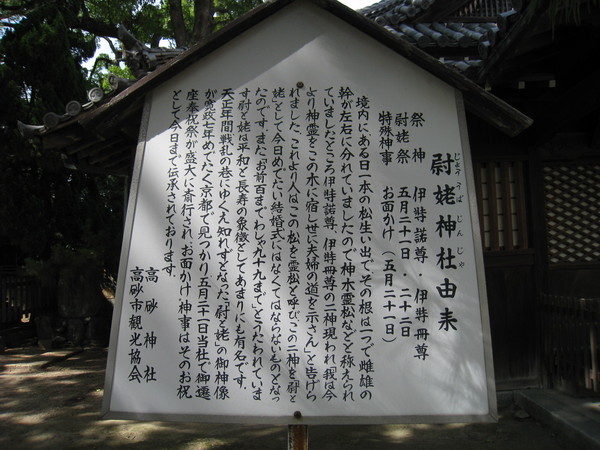 尉姥神社由来
じょう うば じん じゃ
祭神 伊弉諾尊・伊弉冊尊
尉姥祭 五月二十一日・二十二日
特殊神事 お面かけ(五月二十一日)
境内にある日一本の松生い出で、その根は一つで雌雄の
幹が左右に分れていましたので神木霊松などと称えられ
ていましたところ伊弉諾尊、伊弉冊尊の二神現われ「我は今
より神霊をこの木に宿し世に夫婦の道を示さん」と告げら
れました。これより人はこの松を霊松と呼び、この二神を「尉と
姥」として今日めでたい結婚式にはなくてはならないものとなっ
たのです。また「お前百までわしゃ九十九まで」とうたわれていま
す尉と姥は平和と長寿の象徴としてあまりにも有名です。
天正年間戦乱の巷にゆくえ知れずとなった「尉と姥」の御神像
が寛政七年めでたく京都で見つかり五月二十一日当社で御遷
座奉祝祭が盛大に斎行され、お面かけ神事はそのお祝
として今日まで伝承されております。
高砂神社
高砂市観光協会